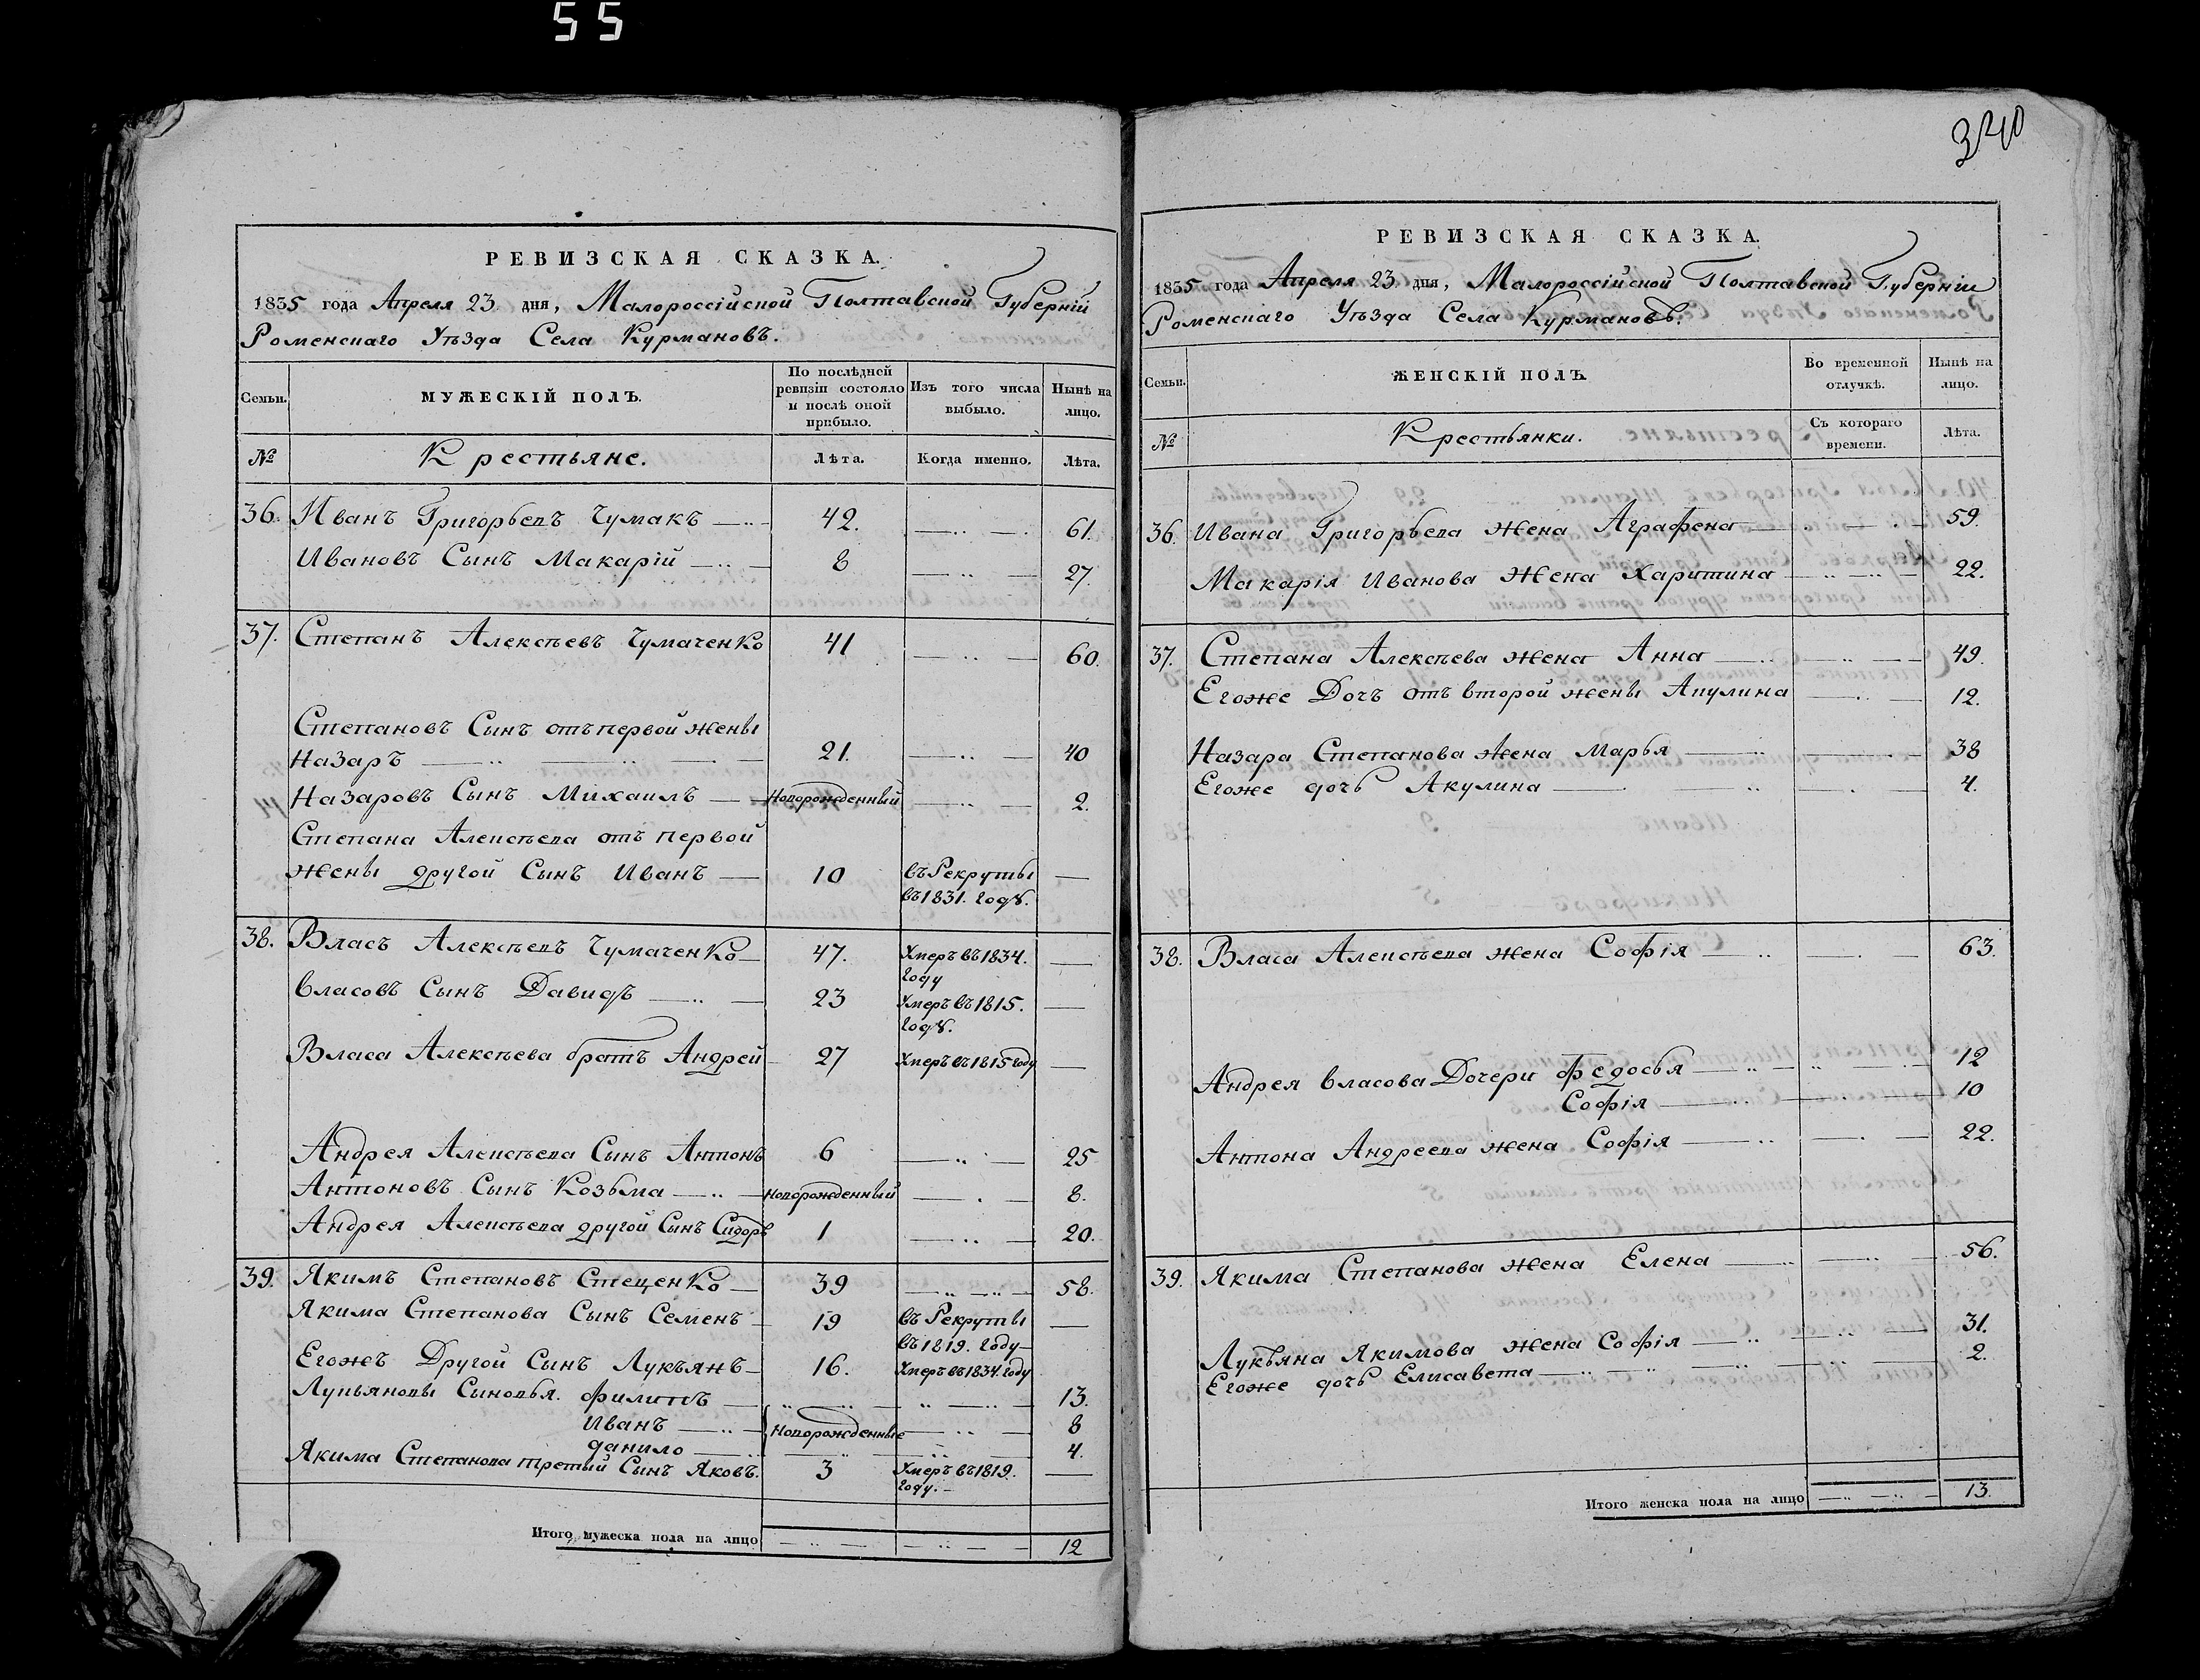 55
РЕВИЗСКАЯ СКАЗКА.
1835 года Апреля 23 дня, Малороссійской Полтавской Губерній
Роменскаго Уѣзда Села Курмановъ.
Семьи.
МУЖЕСКІЙ ПОЛЪ.
По послѣдней ревизіи состояло и послѣ оной прибыло.
Изъ того числа выбыло.
Нынѣ на лицо.
№
Крестьяне.
Лѣта.
Когда именно.
Лѣта.
36. Иванъ Григорьевъ Чумакъ 42. 61.
Ивановъ Сынъ Макарій 8 27.
37. Степанъ Алексѣевъ Чумаченко 41 60.
Степановъ Сынъ отъ первой жены
Назаръ 21. 40
Назаровъ Сынъ Михаилъ Новорожденный 2.
Степана Алексѣева отъ первой
жены другой Сынъ Иванъ 10 въ Рекруты
въ 1831. году.
38. Власъ Алексѣевъ Чумаченко 47. Умеръ въ 1834.
году
Власовъ Сынъ Давидъ 23 Умеръ въ 1815.
году.
Власа Алексѣева братъ Андрей 27 Умеръ въ 1815 году
Андрея Алексѣева Сынъ Антонъ 6 25
Антоновъ Сынъ Козьма Новорожденный 8.
Андрея Алексѣева другой Сынъ Сидоръ 1 20.
39. Якимъ Степановъ Стеценко 39 58.
Якима Степанова Сынъ Семенъ 19 въ Рекруты
въ 1819. году
Егожъ Другой Сынъ Лукъянъ 16. Умеръ въ 1834. году
Лукьяновы Сыновья. Филипъ 13.
Иванъ Новорожденные 8
Данило 4.
Якима Степанова третый Сынъ Яковъ. 3 Умеръ въ 1819.
году.
Итого мужеска пола на лицо 12
340
РЕВИЗСКАЯ СКАЗКА.
1835 года Апреля 23 дня, Малороссійской Полтавской Губерніи
Роменскаго Уѣзда Села Курмановъ.
Семьи.
ЖЕНСКІЙ ПОЛЪ.
Во временной отлучкѣ.
Нынѣ на лицо.
№
Крестьянки.
Съ котораго времени.
Лѣта.
36. Ивана Григорьева жена Аграфена 59.
Макарія Иванова жена Харитина 22.
37. Степана Алексѣева жена Анна 49.
Егоже Дочъ отъ второй жены Акулина 12.
Назара Степанова жена Марья 38
Егоже дочь Акулина 4.
38. Власа Алексѣева жена Софія 63.
Андрея Власова Дочери Федосья 12
Софія 10
Антона Андреева жена Софія 22.
39. Якима Степанова жена Елена 56.
Лукьяна Якимова жена Софія 31.
Егоже дочь Елисавета 2.
Итого женска пола на лицо 13.